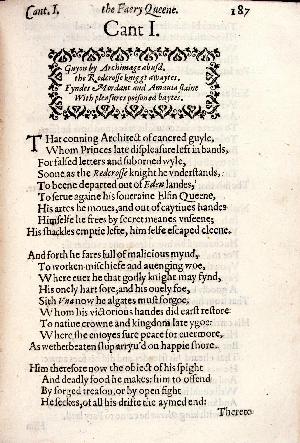 Cant. I. the Faery Queene. 187
Cant I.
Guyon by Archimage abusd,
the Redcrosse knight awaytes,
Fyndes Mordant and Amauia slaine
With pleasures poisoned baytes.
THat conning Architect of cancred guyle,
Whom Princes late displeasure left in bands,
For falsed letters and suborned wyle,
Soone as the Redcrosse knight he vnderstands,
To beene departed out of Eden landes,
To serue againe his soueraine Elfin Queene,
His artes he moues, and out of caytiues handes
Himselfe he frees by secret meanes vnseene;
His shackles emptie lefte, him selfe escaped cleene.
And forth he fares full of malicious mynd,
To worken mischiefe and auenging woe,
Where euer he that godly knight may fynd,
His onely hart sore, and his onely foe,
Sith Vna now he algates must forgoe,
Whom his victorious handes did earst restore
To natiue crowne and kingdom late ygoe:
Where she enioyes sure peace for euermore,
As wetherbeaten ship arryu'd on happie shore.
Him therefore now the obiect of his spight
And deadly food he makes: him to offend
By forged treason, or by open fight
He seekes, of all his drifte the aymed end:
Thereto